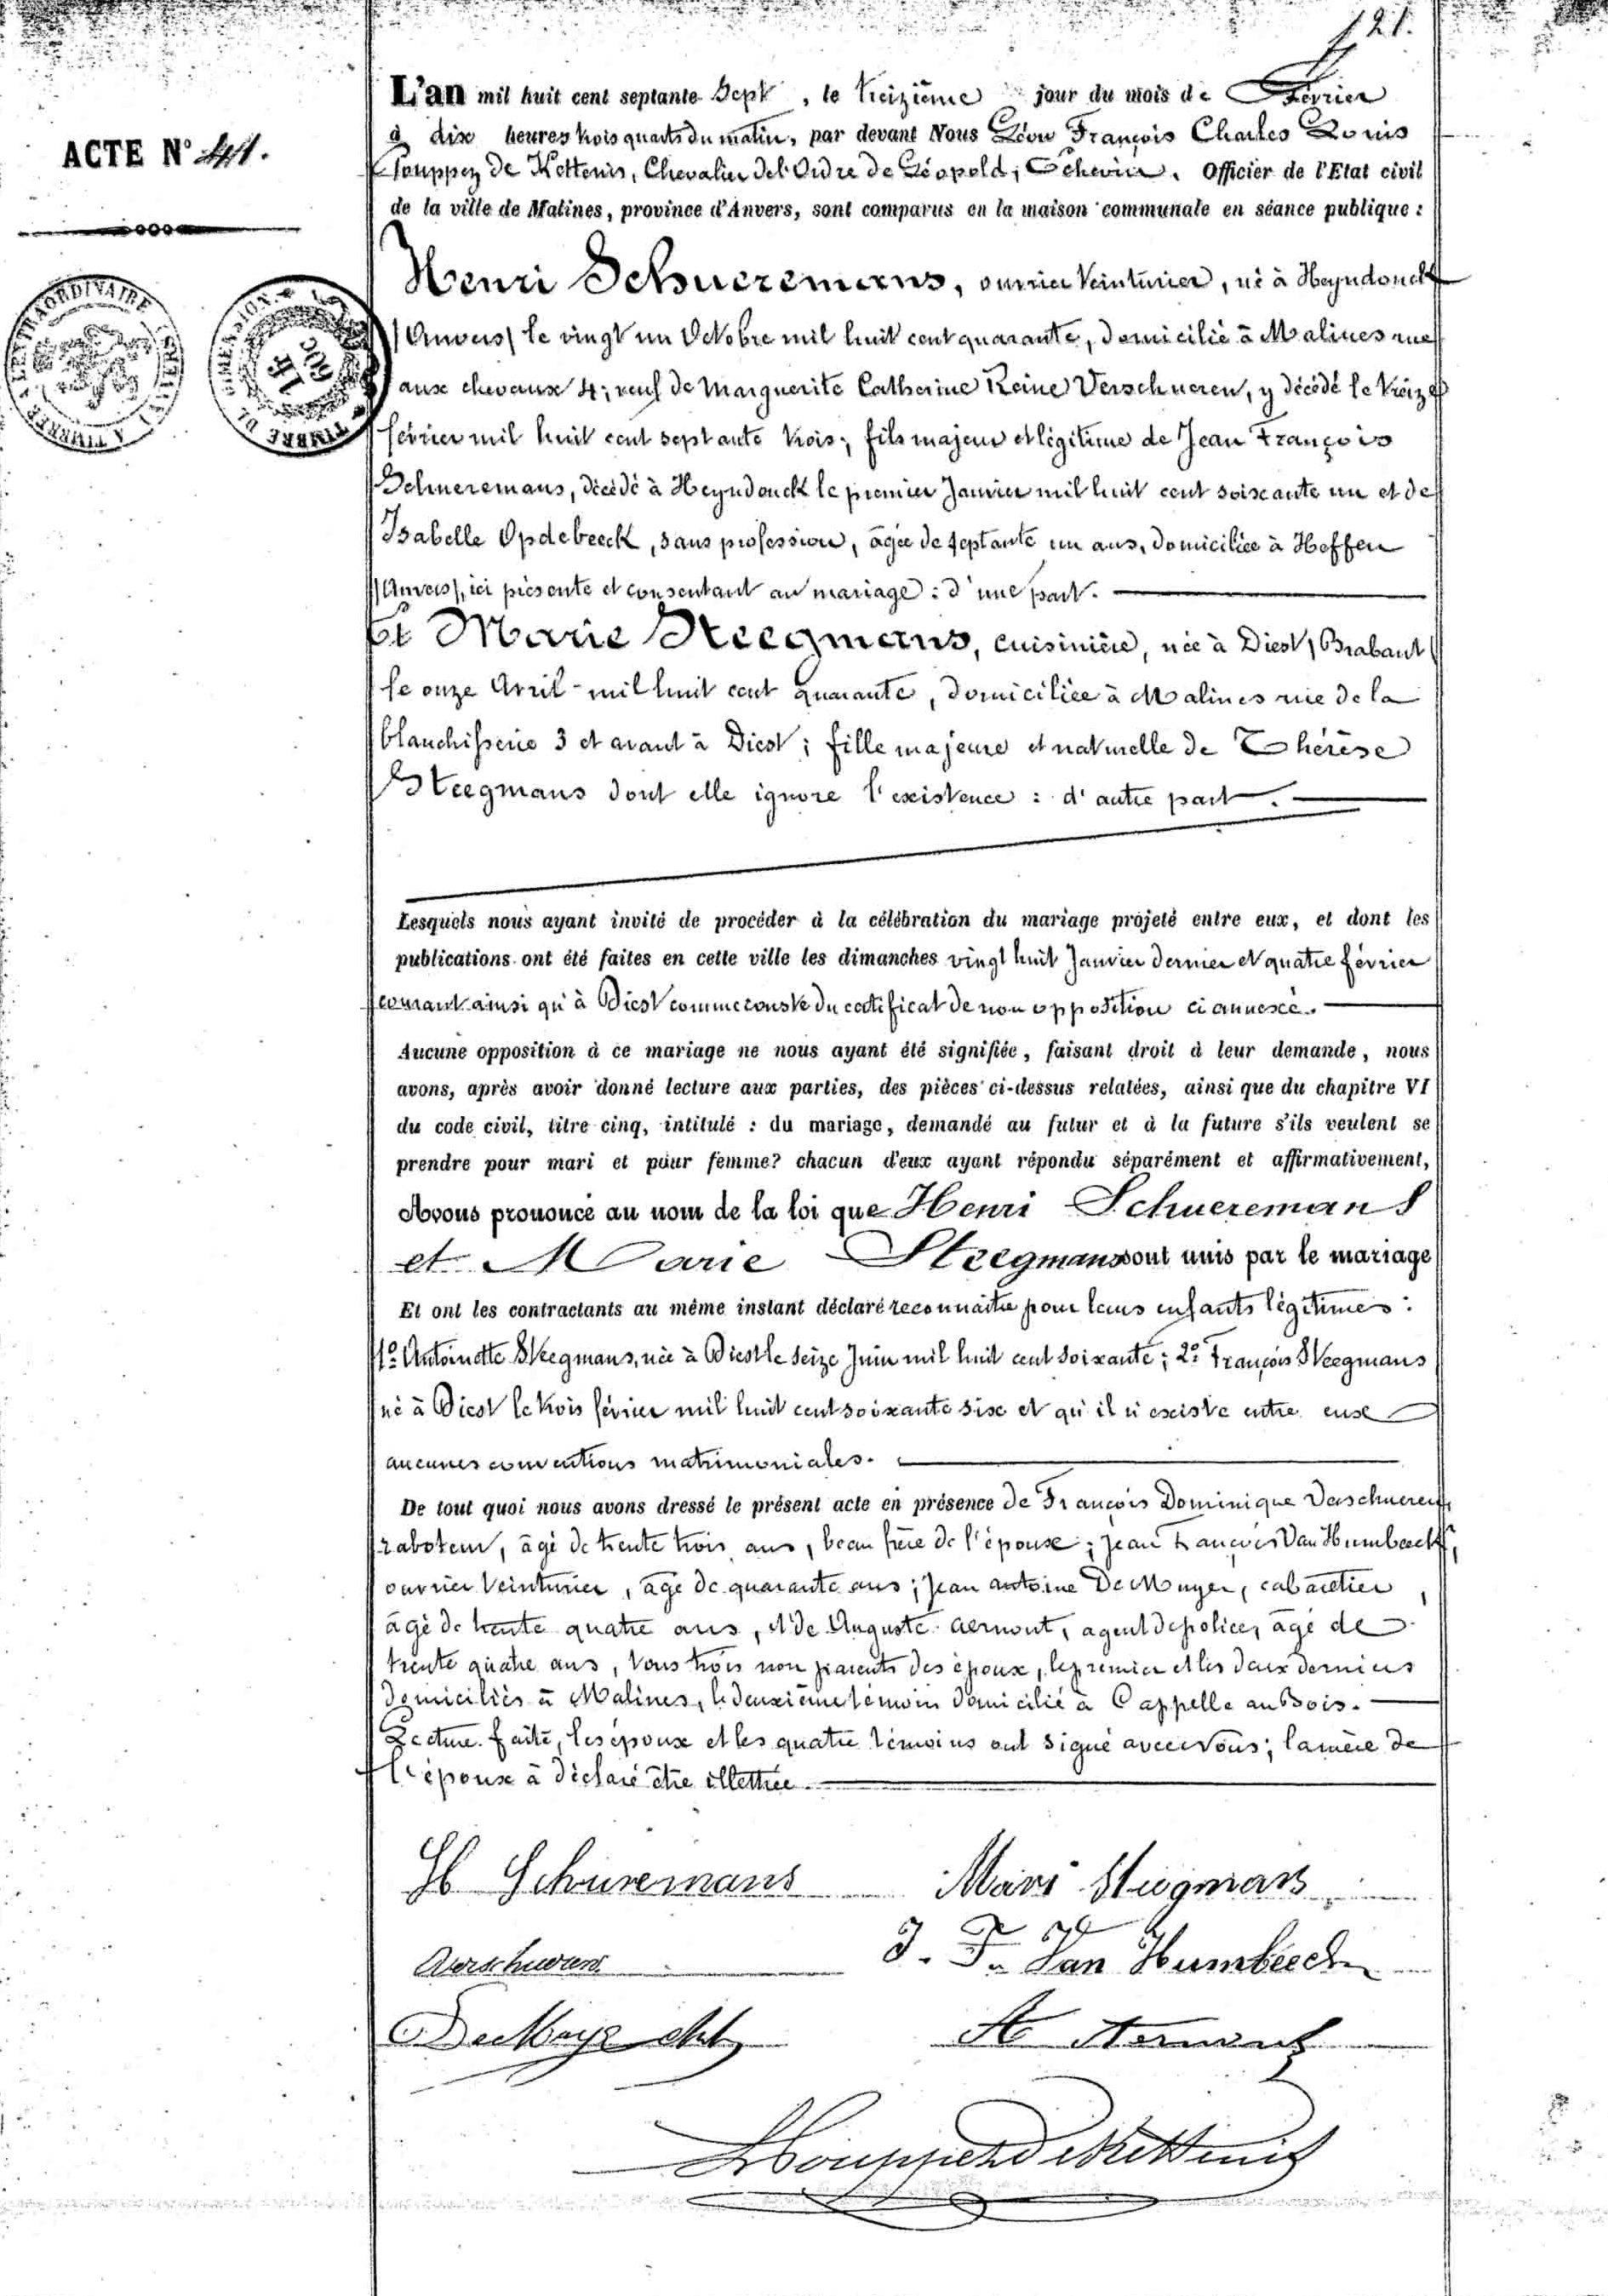 121.
ACTE N° 41.
L'an mil huit cent septante Sept, le treizième jour du mois de Février
à dix heures trois quarts du matin, par devant Nous Léon François Charles Louis
Pouppez de Kettenis, Chevalier de l'Ordre de Léopold, Echevin, Officier de l'Etat civil
de la ville de Malines, province d'Anvers, sont comparus en la maison communale en séance publique :
Henri Schueremans, ouvrier teinturier, né à Heyndonck
/Anvers/ le vingt un Octobre mil huit cent quarante, domicilié à Malines rue
aux chevaux 4; veuf de Marguerite Catherine Reine Verschueren, y décédé le treize
février mil huit cent septante trois; fils majeur et légitime de Jean François
Schueremans, décédé à Heyndonck le premier Janvier mil huit cent soixante un et de
Isabelle Opdebeeck, sans profession, âgée de septante un ans, domiciliée à Heffen
/Anvers/, ici présente et consentant au mariage : d'une part.
Et Marie Steegmans, cuisinière, née à Diest /Brabant/
le onze Avril mil huit cent quarante, domiciliée à Malines rue de la
blanchisserie 3 et avant à Diest; fille majeure et naturelle de Thérèse
Steegmans dont elle ignore l'existence : d'autre part.
Lesquels nous ayant invité de procéder à la célébration du mariage projeté entre eux, et dont les
publications ont été faites en cette ville les dimanches vingt huit Janvier dernier et quatre février
courant ainsi qu'à Diest comme conste du certificat de non opposition ci annexé.
Aucune opposition à ce mariage ne nous ayant été signifiée, faisant droit à leur demande, nous
avons, après avoir donné lecture aux parties, des pièces ci-dessus relatées, ainsi que du chapitre VI
du code civil, titre cinq, intitulé : du mariage, demandé au futur et à la future s'ils veulent se
prendre pour mari et pour femme? chacun d'eux ayant répondu séparément et affirmativement,
Avons prononcé au nom de la loi que Henri Schueremans
et Marie Steegmans sont unis par le mariage
Et ont les contractants au même instant déclaré reconnaître pour leurs enfants légitimes :
1° Antoinette Steegmans, née à Diest le seize Juin mil huit cent soixante; 2° François Steegmans
né à Diest le trois février mil huit cent soixante six et qu'il n'existe entre eux
aucunes conventions matrimoniales.
De tout quoi nous avons dressé le présent acte en présence de François Dominique Verschueren,
raboteur, âgé de trente trois ans, beau frère de l'épouse; Jean François Van Humbeeck,
ouvrier teinturier, âgé de quarante ans; Jean Antoine De Muyer, cabaretier,
âgé de trente quatre ans, et de Auguste Aernout, agent de police, âgé de
trente quatre ans, tous trois non parents des époux, le premier et les deux derniers
domiciliés à Malines, le deuxième témoin domicilié à Cappelle au Bois.
Lecture faite, les époux et les quatre témoins ont signé avec Nous; la mère de
l'époux à déclaré être illettrée.
H Schuremans Mari Stegmans
J. F. Van Humbeeck